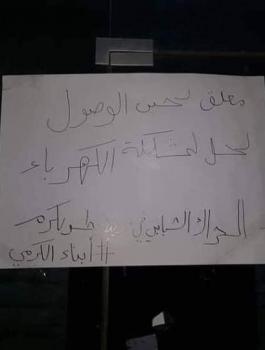 مغلق لحين الوصول
لحل لمشكلة الكهرباء
الحراك الشبابي في طولكرم
#أبناء الكرمي